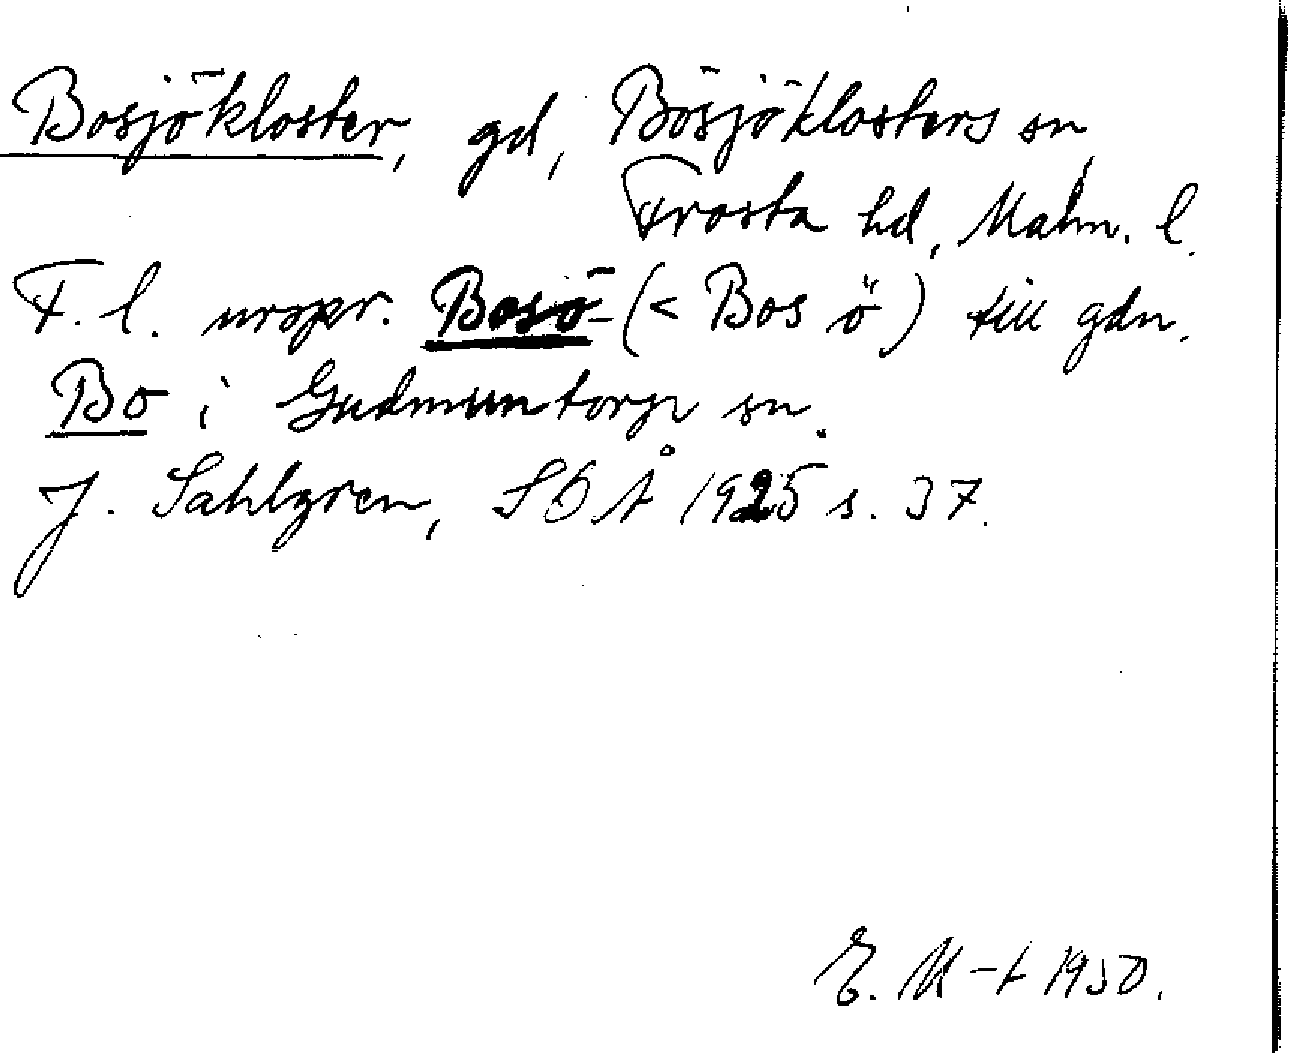 Bosjökloster, gd, Bosjöklosters sn,
Frosta hd, Malm. l.
F. l. urspr. Bosö- (< Bos ö) till gdn.
Bo i Gudmuntorp sn.
J. Sahlgren, SOÅ 1925 s. 37.
E. M-t 1950.